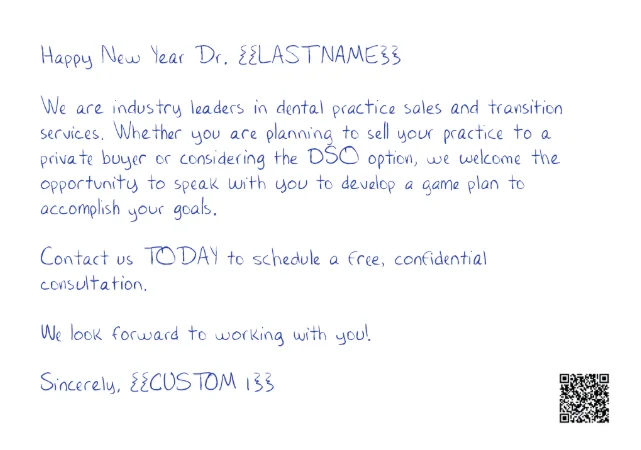 Happy New Year Dr. {{LASTNAME}}
We are industry leaders in dental practice sales and transition
services. Whether you are planning to sell your practice to a
private buyer or considering the DSO option, we welcome the
opportunity to speak with you to develop a game plan to
accomplish your goals.
Contact us TODAY to schedule a free, confidential
consultation.
We look forward to working with you!
Sincerely, {{CUSTOM 1}}